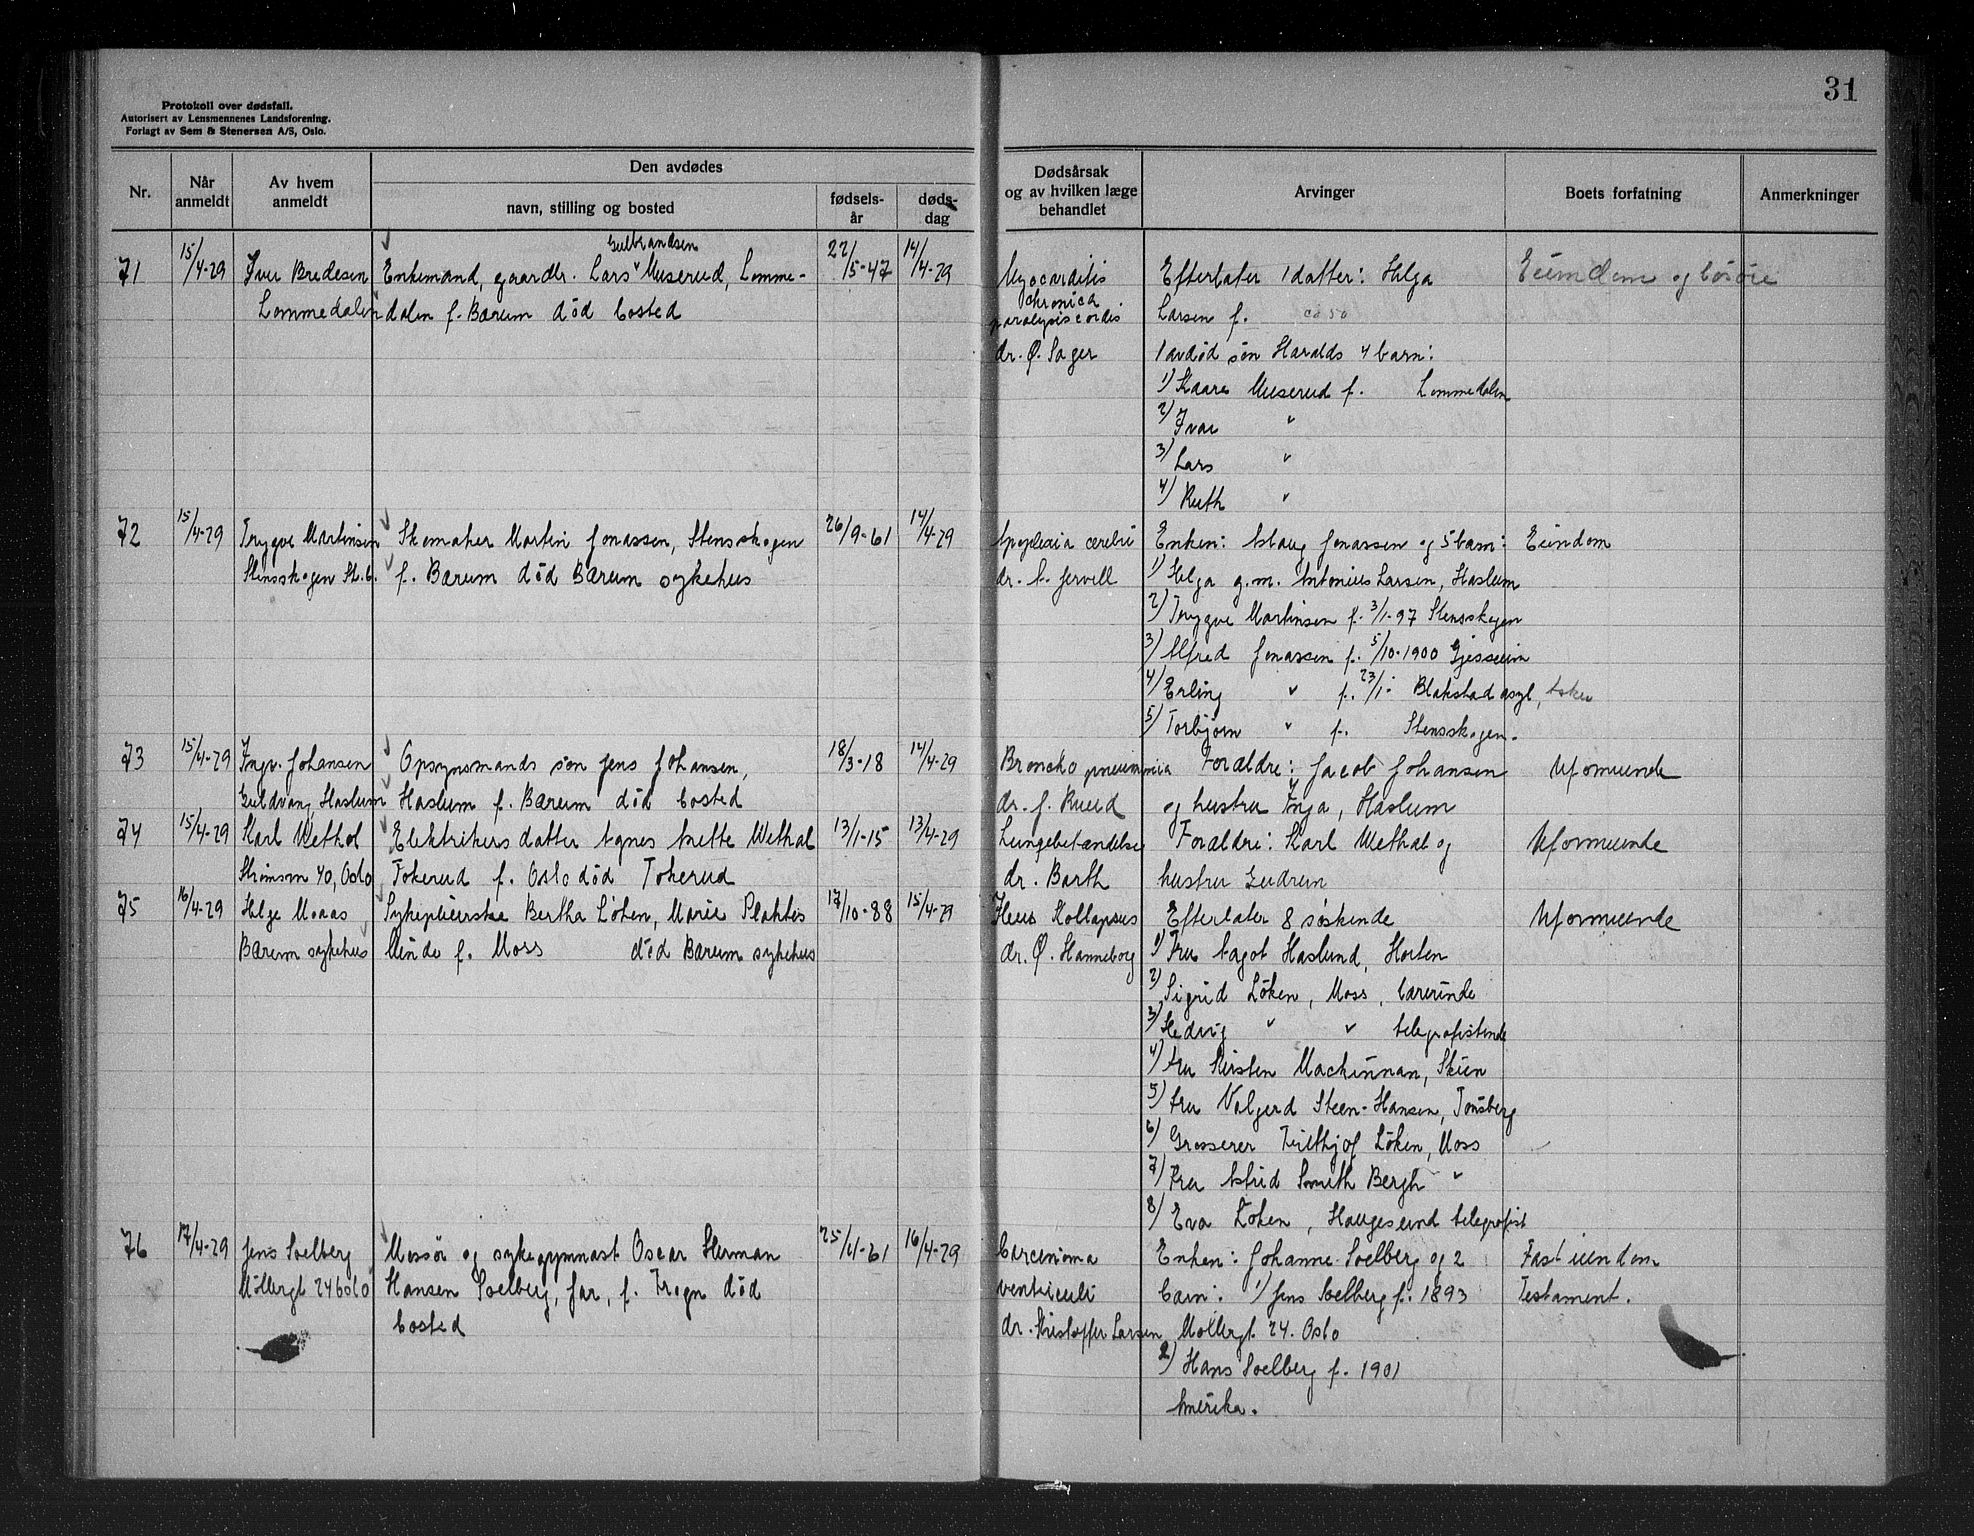 31
Protokoll over dødsfall.
Autorisert av Lensmennenes Landsforening.
Forlagt av Sem & Stenersen A/S, Oslo.
Nr.
Når anmeldt
Av hvem anmeldt
Den avdødes
navn, stilling og bosted
fødsels-år
døds-dag
Dødsårsak og av hvilken læge behandlet
Arvinger
Boets forfatning
Anmerkninger
71 15/4-29 Iver Bredesen Enkemand, gaardbr. Lars Gulbrandsen Muserud, Lomme- 22/5-47 14/4-29 Myocarditis Efterlater 1 datter: Helga Eiendom og løsøre
Lommedalen dalen f. Bærum död bosted chronica Larsen f. ca 50
paralysis cordis
dr. Ø. Sager 1 avdød søn Haralds 4 barn:
1) Kaare Muserud f. Lommedalen
2) Ivar "
3) Lars "
4) Ruth "
72 15/4-29 Trygve Martinsen Skomaker Martin Jonassen, Stensskogen 26/9-61 14/4-29 Apoplexia cerebri Enken: Aslaug Jonassen og 5 barn: Eiendom
Stensskogen St.b. f. Bærum död Bærum sykehus dr. A. Jervell 1) Helga g.m. Antonius Larsen, Haslum
2) Trygve Martinsen f. 3/1-97 Stensskogen
3) Alfred Jonassen f. 5/10-1900 Gjessum
4) Erling " f. 23/1- Blakstad asyl, Asker
5) Torbjørn " f. Stensskogen.
73 15/4-29 Ingv. Johansen Opsynsmands søn Jens Johansen, 18/3-18 14/4-29 Broncko pneumonia Forældre: Jacob Johansen Uformuende
Guldvang Haslum Haslum f. Bærum död bosted dr. J. Ruud og hustru Inga, Haslum
74 15/4-29 Karl Wethal Elektrikers datter Agnes Anette Wethal 13/1-15 13/4-29 Lungebetændelse Forældre: Karl Wethal og Uformuende
Strömsvn 40, Oslo Tokerud f. Oslo död Tokerud dr. Barth hustru Gudrun
75 16/4-29 Helge Moaas Sykepleierske Bertha Löken, Marie Plahtes 17/10-88 15/4-29 Ileus Kollapsus Efterlater 8 söskende Uformuende
Bærum sykehus Minde f. Moss död Bærum sykehus dr. Ø. Hanneborg 1) Fru Aagot Haslund, Horten
2) Sigrid Löken, Moss, lærerinde
3) Hedvig " " telegrafistinde
4) Fru Kirsten Mackinnan, Skien
5) Fru Valgerd Steen-Hansen, Tönsberg
6) Grosserer Fridthjof Löken, Moss
7) Fru Astrid Smith Bergh "
8) Eva Löken, Haugesund telegrafist
76 17/4-29 Jens Soelberg Massör og sykegymnast Oscar Herman 25/4-61 16/4-29 Carcinoma Enken: Johanne Soelberg og 2 Fast eiendom
Möllergt 24 Oslo Hansen Soelberg, Jar, f. Frogn död ventriculi barn: 1) Jens Soelberg f. 1893 Testament.
bosted dr. Kristoffer Larsen Möllergt 24. Oslo
2) Hans Soelberg f. 1901
Amerika.